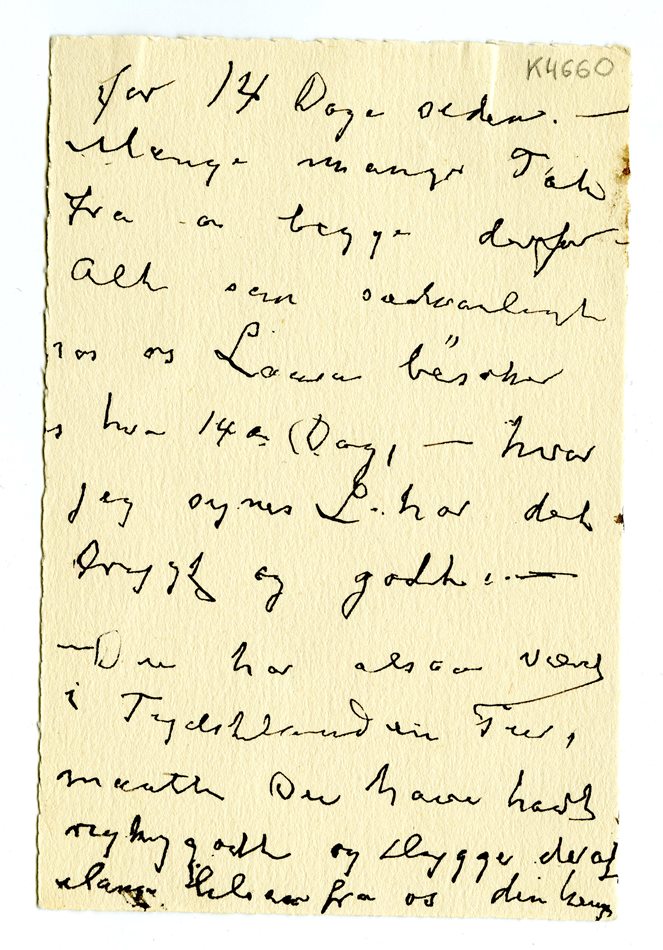 K4660
for 14 Dage siden. —
Mange mange Tak
fra os begge derfor —
Alt som sædvanlagt
hos os Laura besøker
os hver 14 de Dag, — hvor
jeg synes L. har det
trygt og godt. —
— Du har alsaa været
i Tydskland en Tur,
maatte Du have havt
godt og hygge deraf
Mange Hilsen fra os din heng